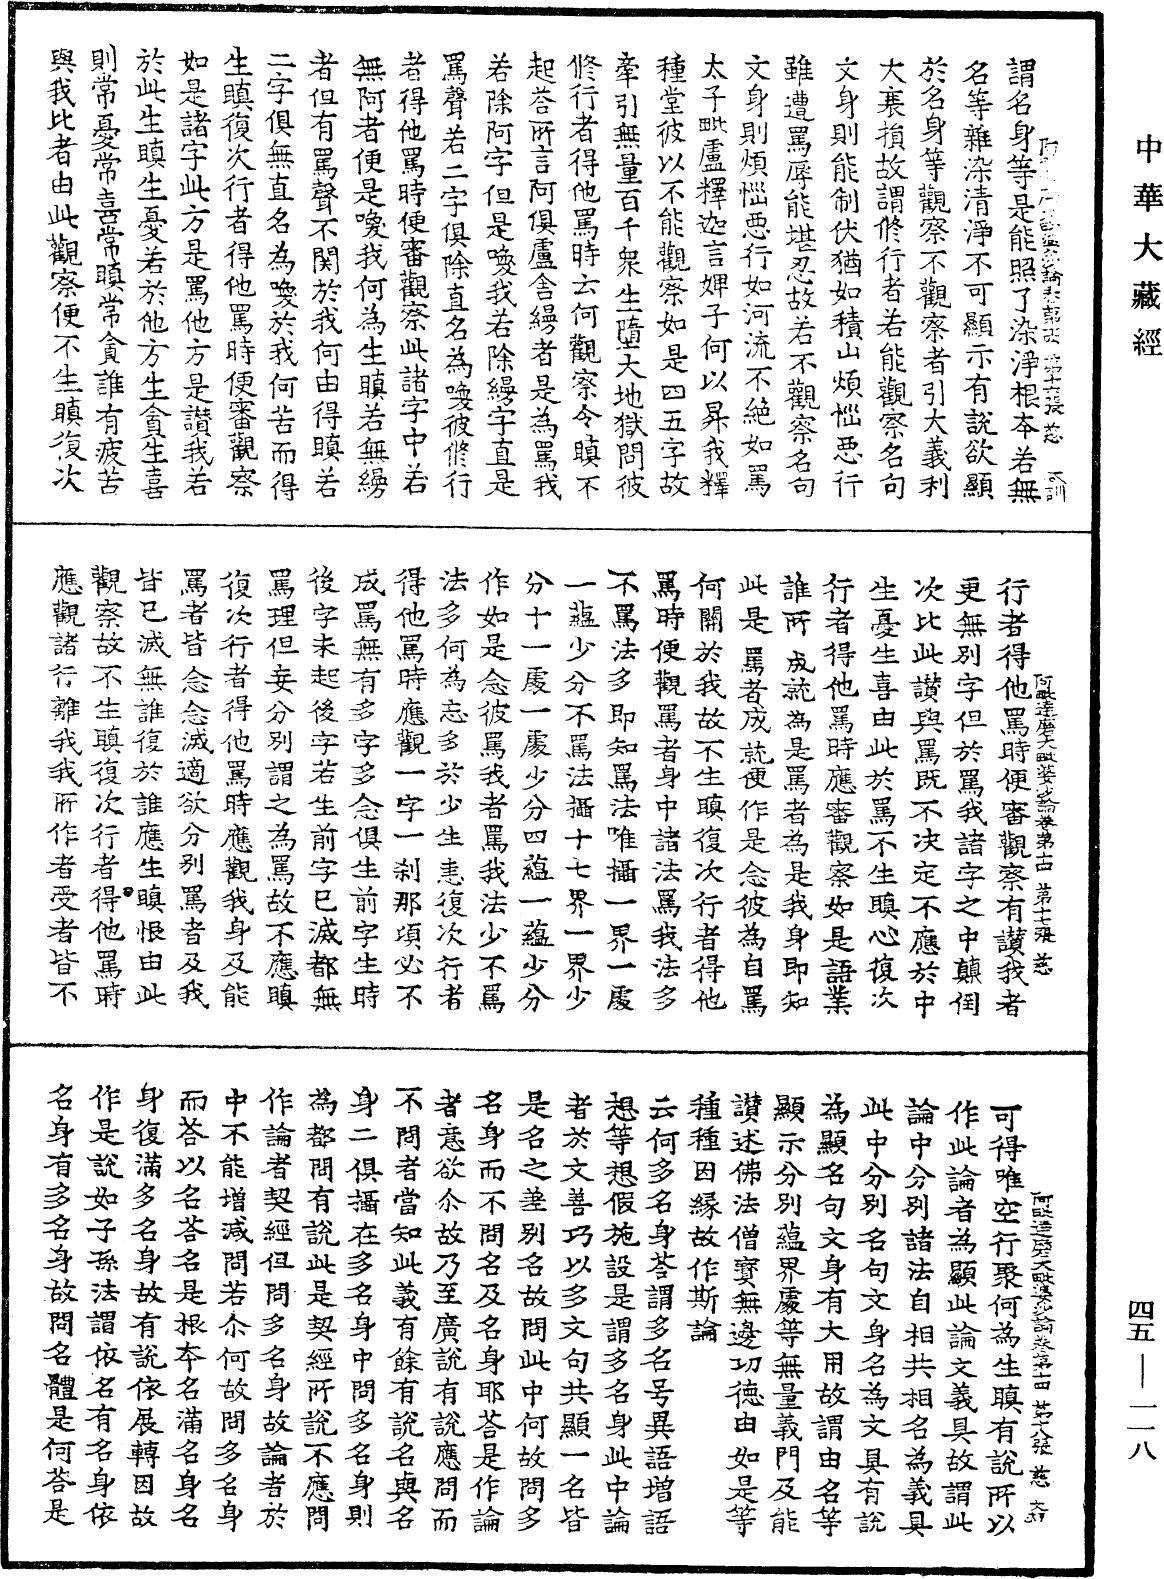 中華大藏經
謂名身等是能照了染淨根本若無
名等雜染清淨不可顯示有說欲顯
於名身等觀察不觀察者引大義利
大衰損故謂修行者若能觀察名句
文身則能制伏猶如積山煩惱惡行
雖遭罵辱能堪忍故若不觀察名句
文身則煩惱惡行如河流不絕如罵
太子毗盧釋迦言婢子何以昇我釋
種堂彼以不能觀察如是四五字故
牽引無量百千衆生墮大地獄問彼
修行者得他罵時云何觀察令瞋不
起荅所言阿俱盧舍縵者是為罵我
若除阿字但是喚我若除縵字直是
罵聲若二字俱除直名為喚彼修行
者得他罵時便審觀察此諸字中若
無阿者便是喚我何為生瞋若無縵
者但有罵聲不關於我何由得瞋若
二字俱無直名為喚於我何苦而得
生瞋復次行者得他罵時便審觀察
如是諸字此方是罵他方是讚我若
於此生瞋生憂若於他方生貪生喜
則常憂常喜常瞋常貪誰有疲苦
與我比者由此觀察便不生瞋復次
阿毗達磨大毗婆沙論卷第十四 第十七張 慈
行者得他罵時便審觀察有讚我者
更無別字但於罵我諸字之中顛倒
次比此讚與罵既不決定不應於中
生憂生喜由此於罵不生瞋心復次
行者得他罵時應審觀察如是語業
誰所成就為是罵者為是我身即知
此是罵者成就便作是念彼為自罵
何關於我故不生瞋復次行者得他
罵時便觀罵者身中諸法罵我法多
不罵法多即知罵法唯攝一界一處
一蘊少分不罵法攝十七界一界少
分十一處一處少分四蘊一蘊少分
作如是念彼罵我者罵我法少不罵
法多何為忘多於少生恚復次行者
得他罵時應觀一字一剎那頃必不
成罵無有多字多念俱生前字生時
後字未起後字若生前字已滅都無
罵理但妄分別謂之為罵故不應瞋
復次行者得他罵時應觀我身及能
罵者皆念念滅適欲分別罵者及我
皆已滅無誰復於誰應生瞋恨由此
觀察故不生瞋復次行者得他罵時
應觀諸行離我我所作者受者皆不
阿毗達磨大毗婆沙論卷第十四 第十八張 慈
可得唯空行聚何為生瞋有說所以
作此論者為顯此論文義具故謂此
論中分別諸法自相共相名為義具
此中分別名句文身名為文具有說
為顯名句文身有大用故謂由名等
顯示分別蘊界處等無量義門及能
讚述佛法僧寶無邊功德由如是等
種種因緣故作斯論
云何多名身荅謂多名号異語增語
想等想假施設是謂多名身此中論
者於文善巧以多文句共顯一名皆
是名之差別名故問此中何故問多
名身而不問名及名身耶荅是作論
者意欲尒故乃至廣說有說應問而
不問者當知此義有餘有說名與名
身二俱攝在多名身中問多名身則
為都問有說此是契經所說不應問
作論者契經但問多名身故論者於
中不能增減問若尒何故問多名身
而荅以名荅名是根本名滿名身名
身復滿多名身故有說依展轉因故
作是說如子孫法謂依名有名身依
名身有多名身故問名體是何荅是
四五—一一八